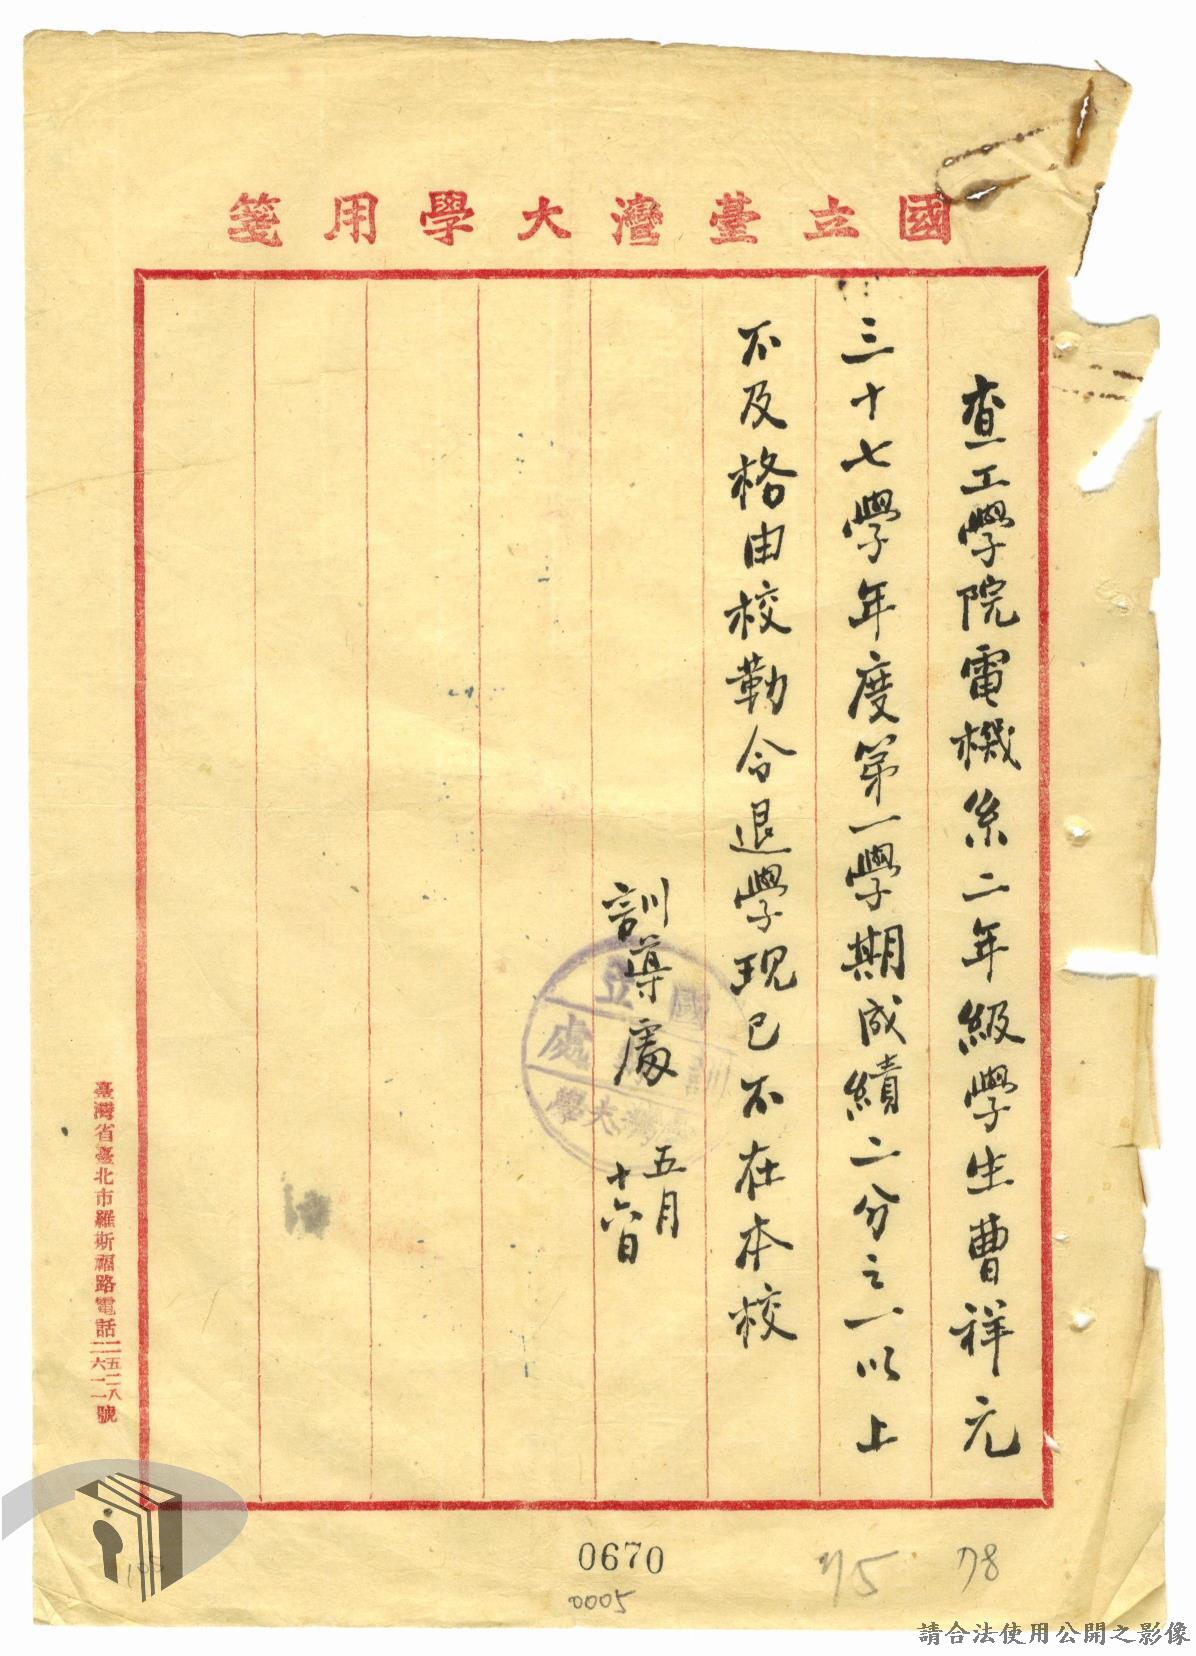 國立臺灣大學用箋
查工學院電機系二年級學生曹祥元
三十七學年度第一學期成績二分之一以上
不及格由校勒令退學現已不在本校
訓導處
五月
十六日
國立
訓 處
臺灣大學
臺灣省臺北市羅斯福路電話二五二八
二六一一號
0670
0005
75
78
請合法使用公開之影像